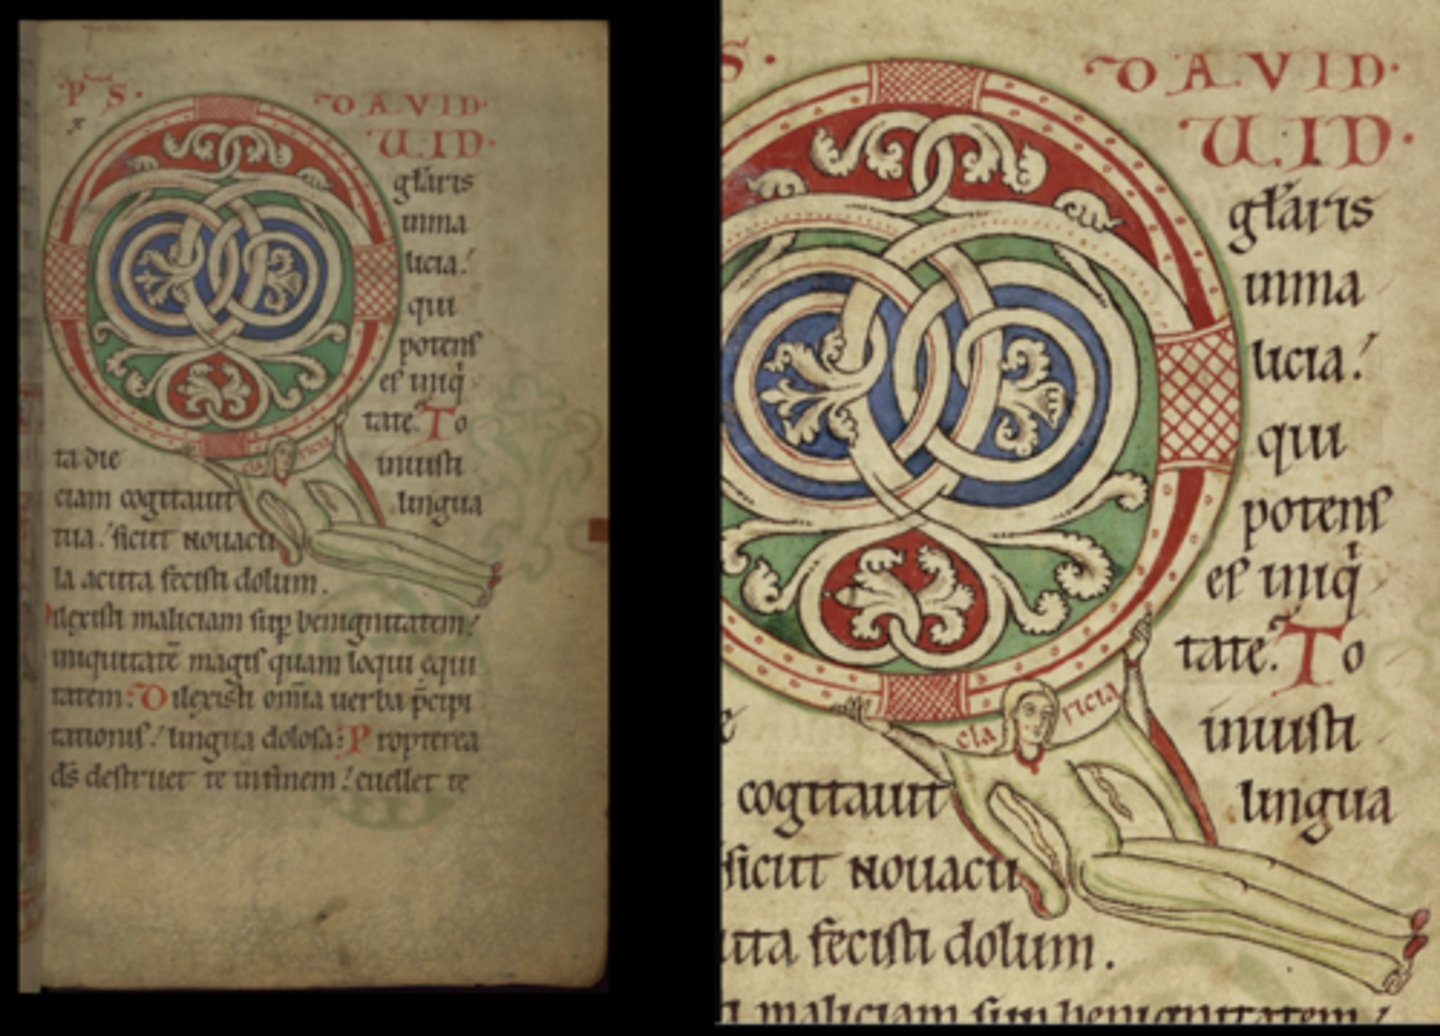 PS. DAVID.
U.ID.
głaris
inma
licia.
qui
potens
es iniq
tate. To
ta die iniusti
cla ricia
ciam cogitauit lingua
tua. sicut nouacu
la acuta fecisti dolum.
ilexisti maliciam sup benignitatem.
iniquitatē magis quam loqui equi
tatem: Dilexisti omīa uerba pcipi
tationis. lingua dolosa: Propterea
ds destruet te infinem. euellet te
S. DAVID.
U.ID.
głaris
inma
licia.
qui
potens
es iniq
tate. To
cla ricia
iniusti
cogitauit lingua
sicut nouacu
uta fecisti dolum.
maliciam sup benignitatem.